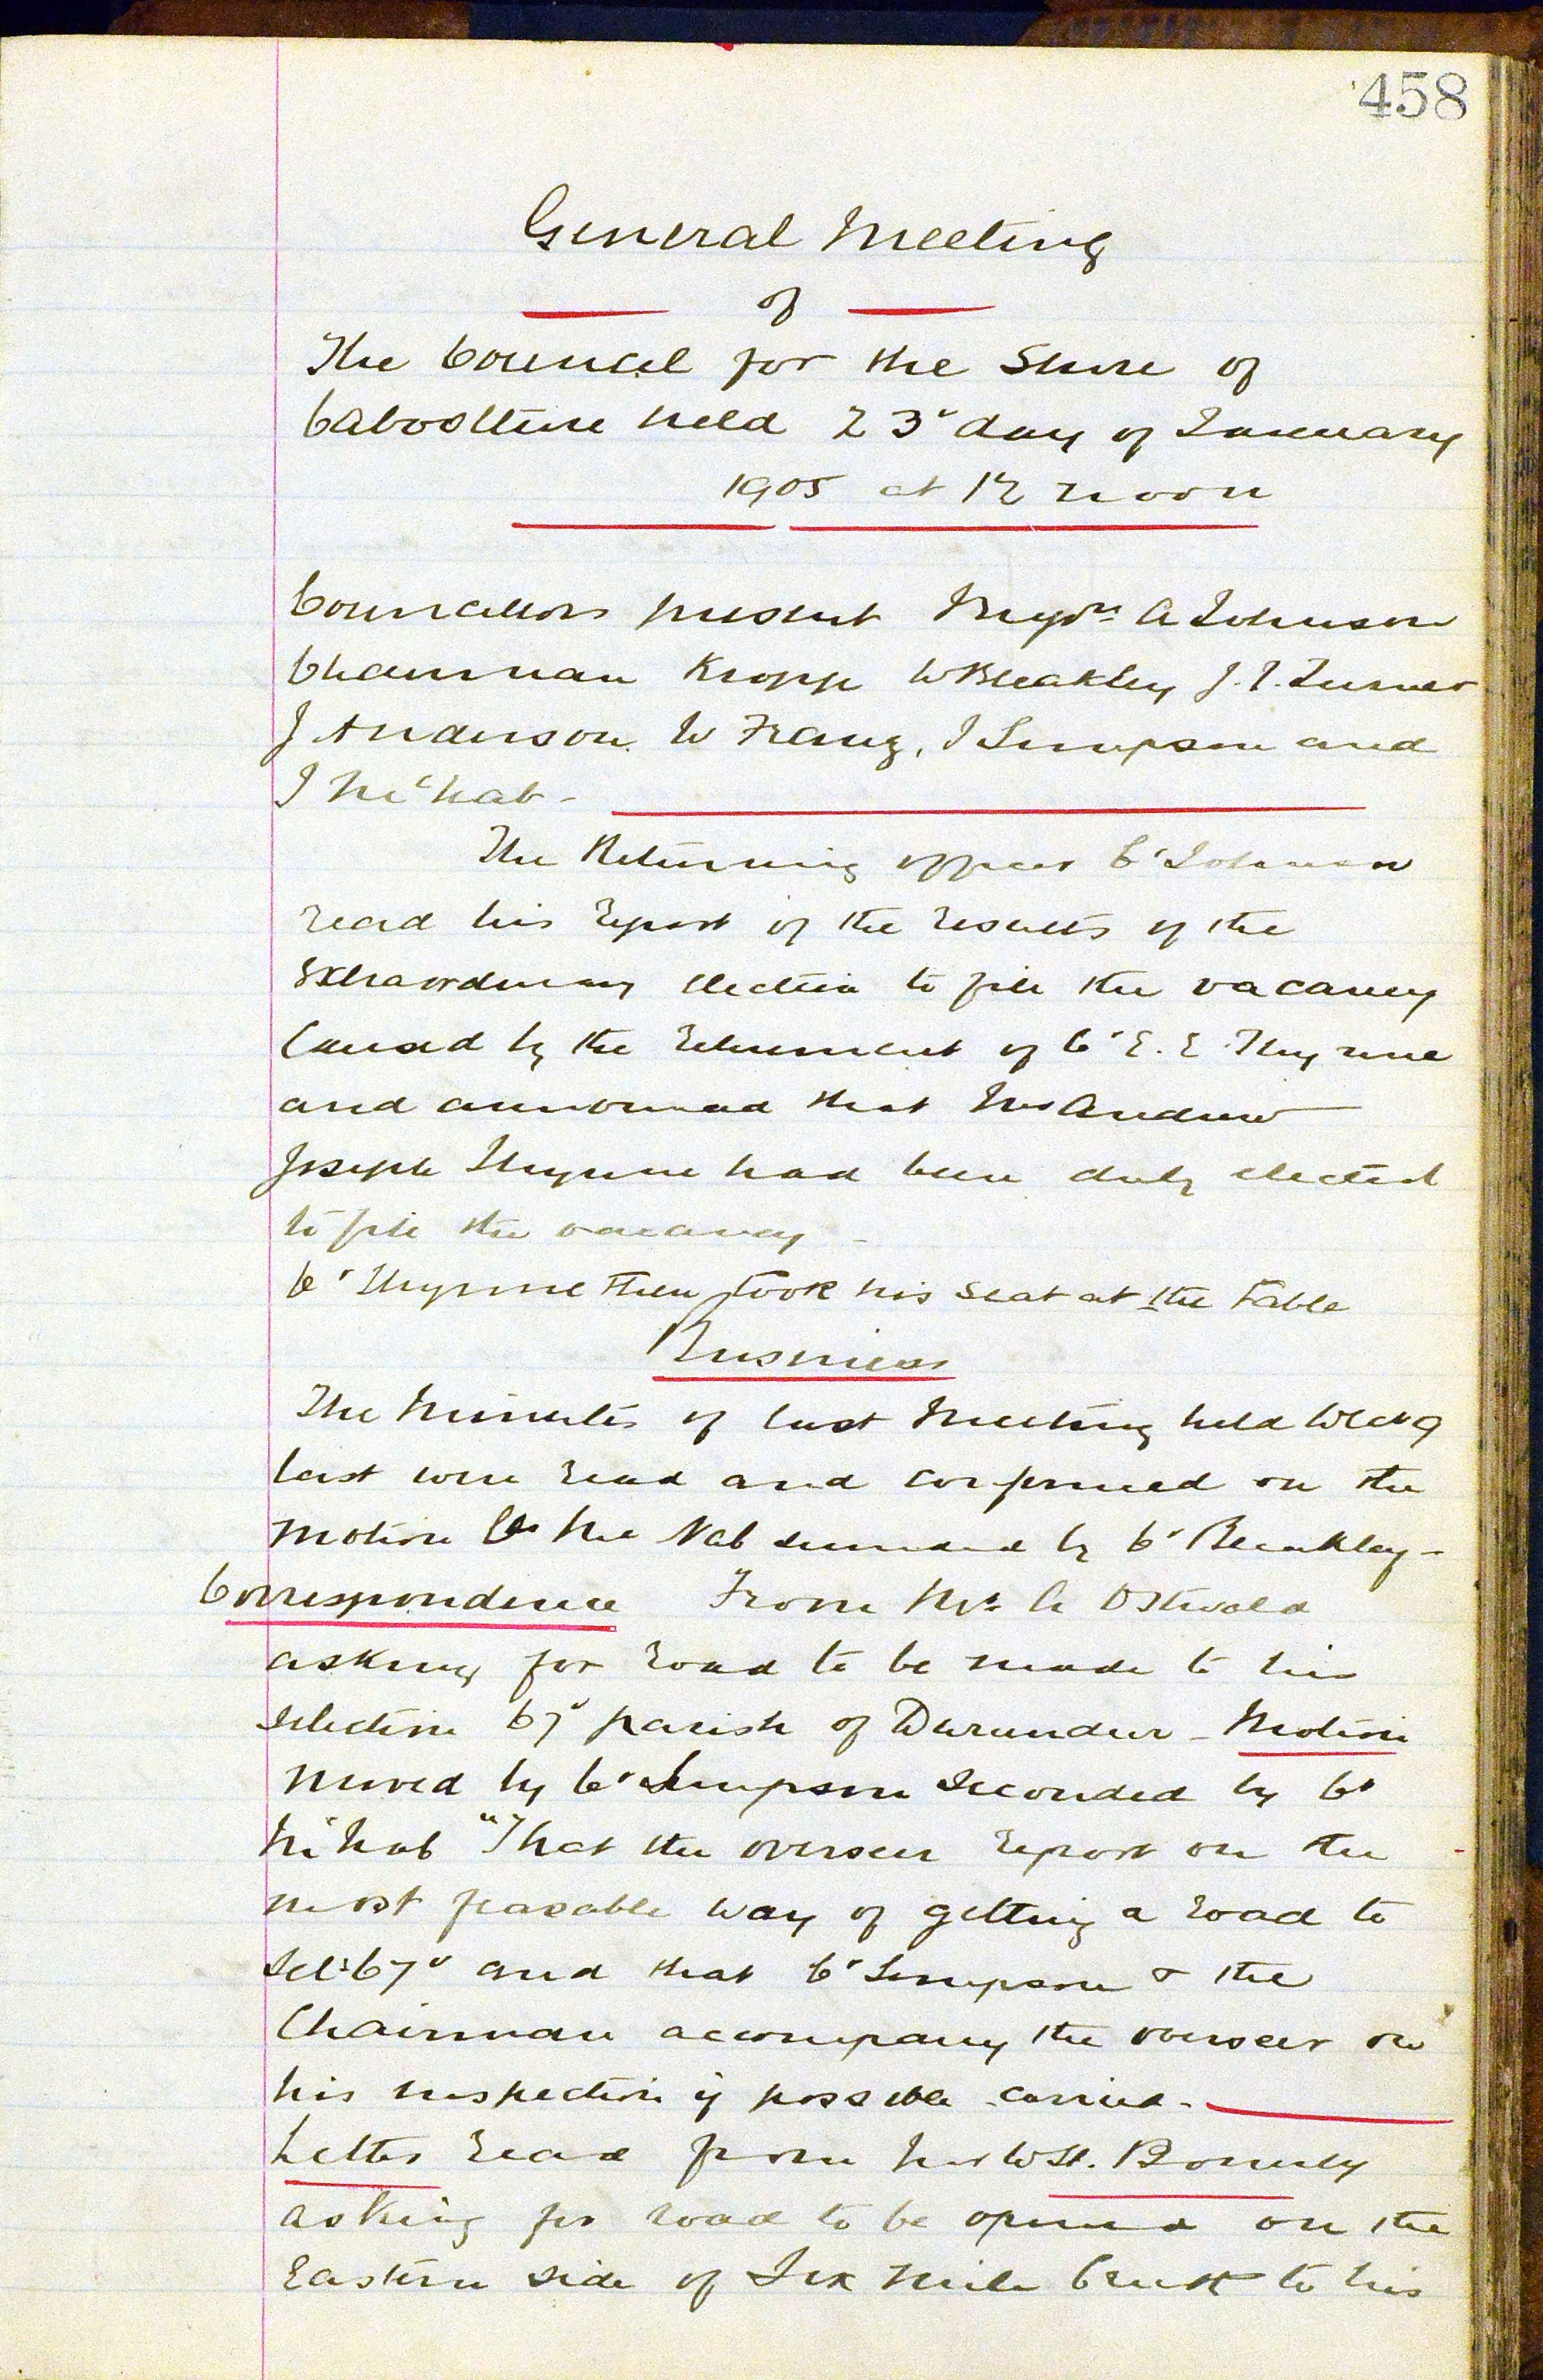 458
General Meeting
of
The Council for the Shire of
Caboolture held 23rd day of January
1905 at 12 noon
Councillors present A Johnson
Chairman Kropp W Bleakley J. T. Turner
J Anderson W Franz, J Simpson and
J McNab -
The Returning officer Cr Johnson
read his report of the results of the
extraordinary election to fill the vacancy
Caused by the retirement of Cr E. E. Thynne
and announced that Mr Andrew
Joseph Thynne had been duly elected
to fill the vacancy -
Cr Thynne then took his seat at the table
Business
The Minutes of last Meeting held
last were read and confirmed on the
motion Cr McNab seconded by Cr Bleakley -
Correspondence From Mr A Ostwald
asking for road to be made to his
selection 67v parish of Durundur - Motion
Moved by Cr Simpson Seconded by Cr
McNab "That the overseer report on the
most feasable way of getting a road to
Sel: 67v and that Cr Simpson & the
Chairman accompany the overseer on
his inspection if possible - carried -
Letter read from Mr W H.
asking for road to be opened on the
Eastern side of Six Mile Creek to his